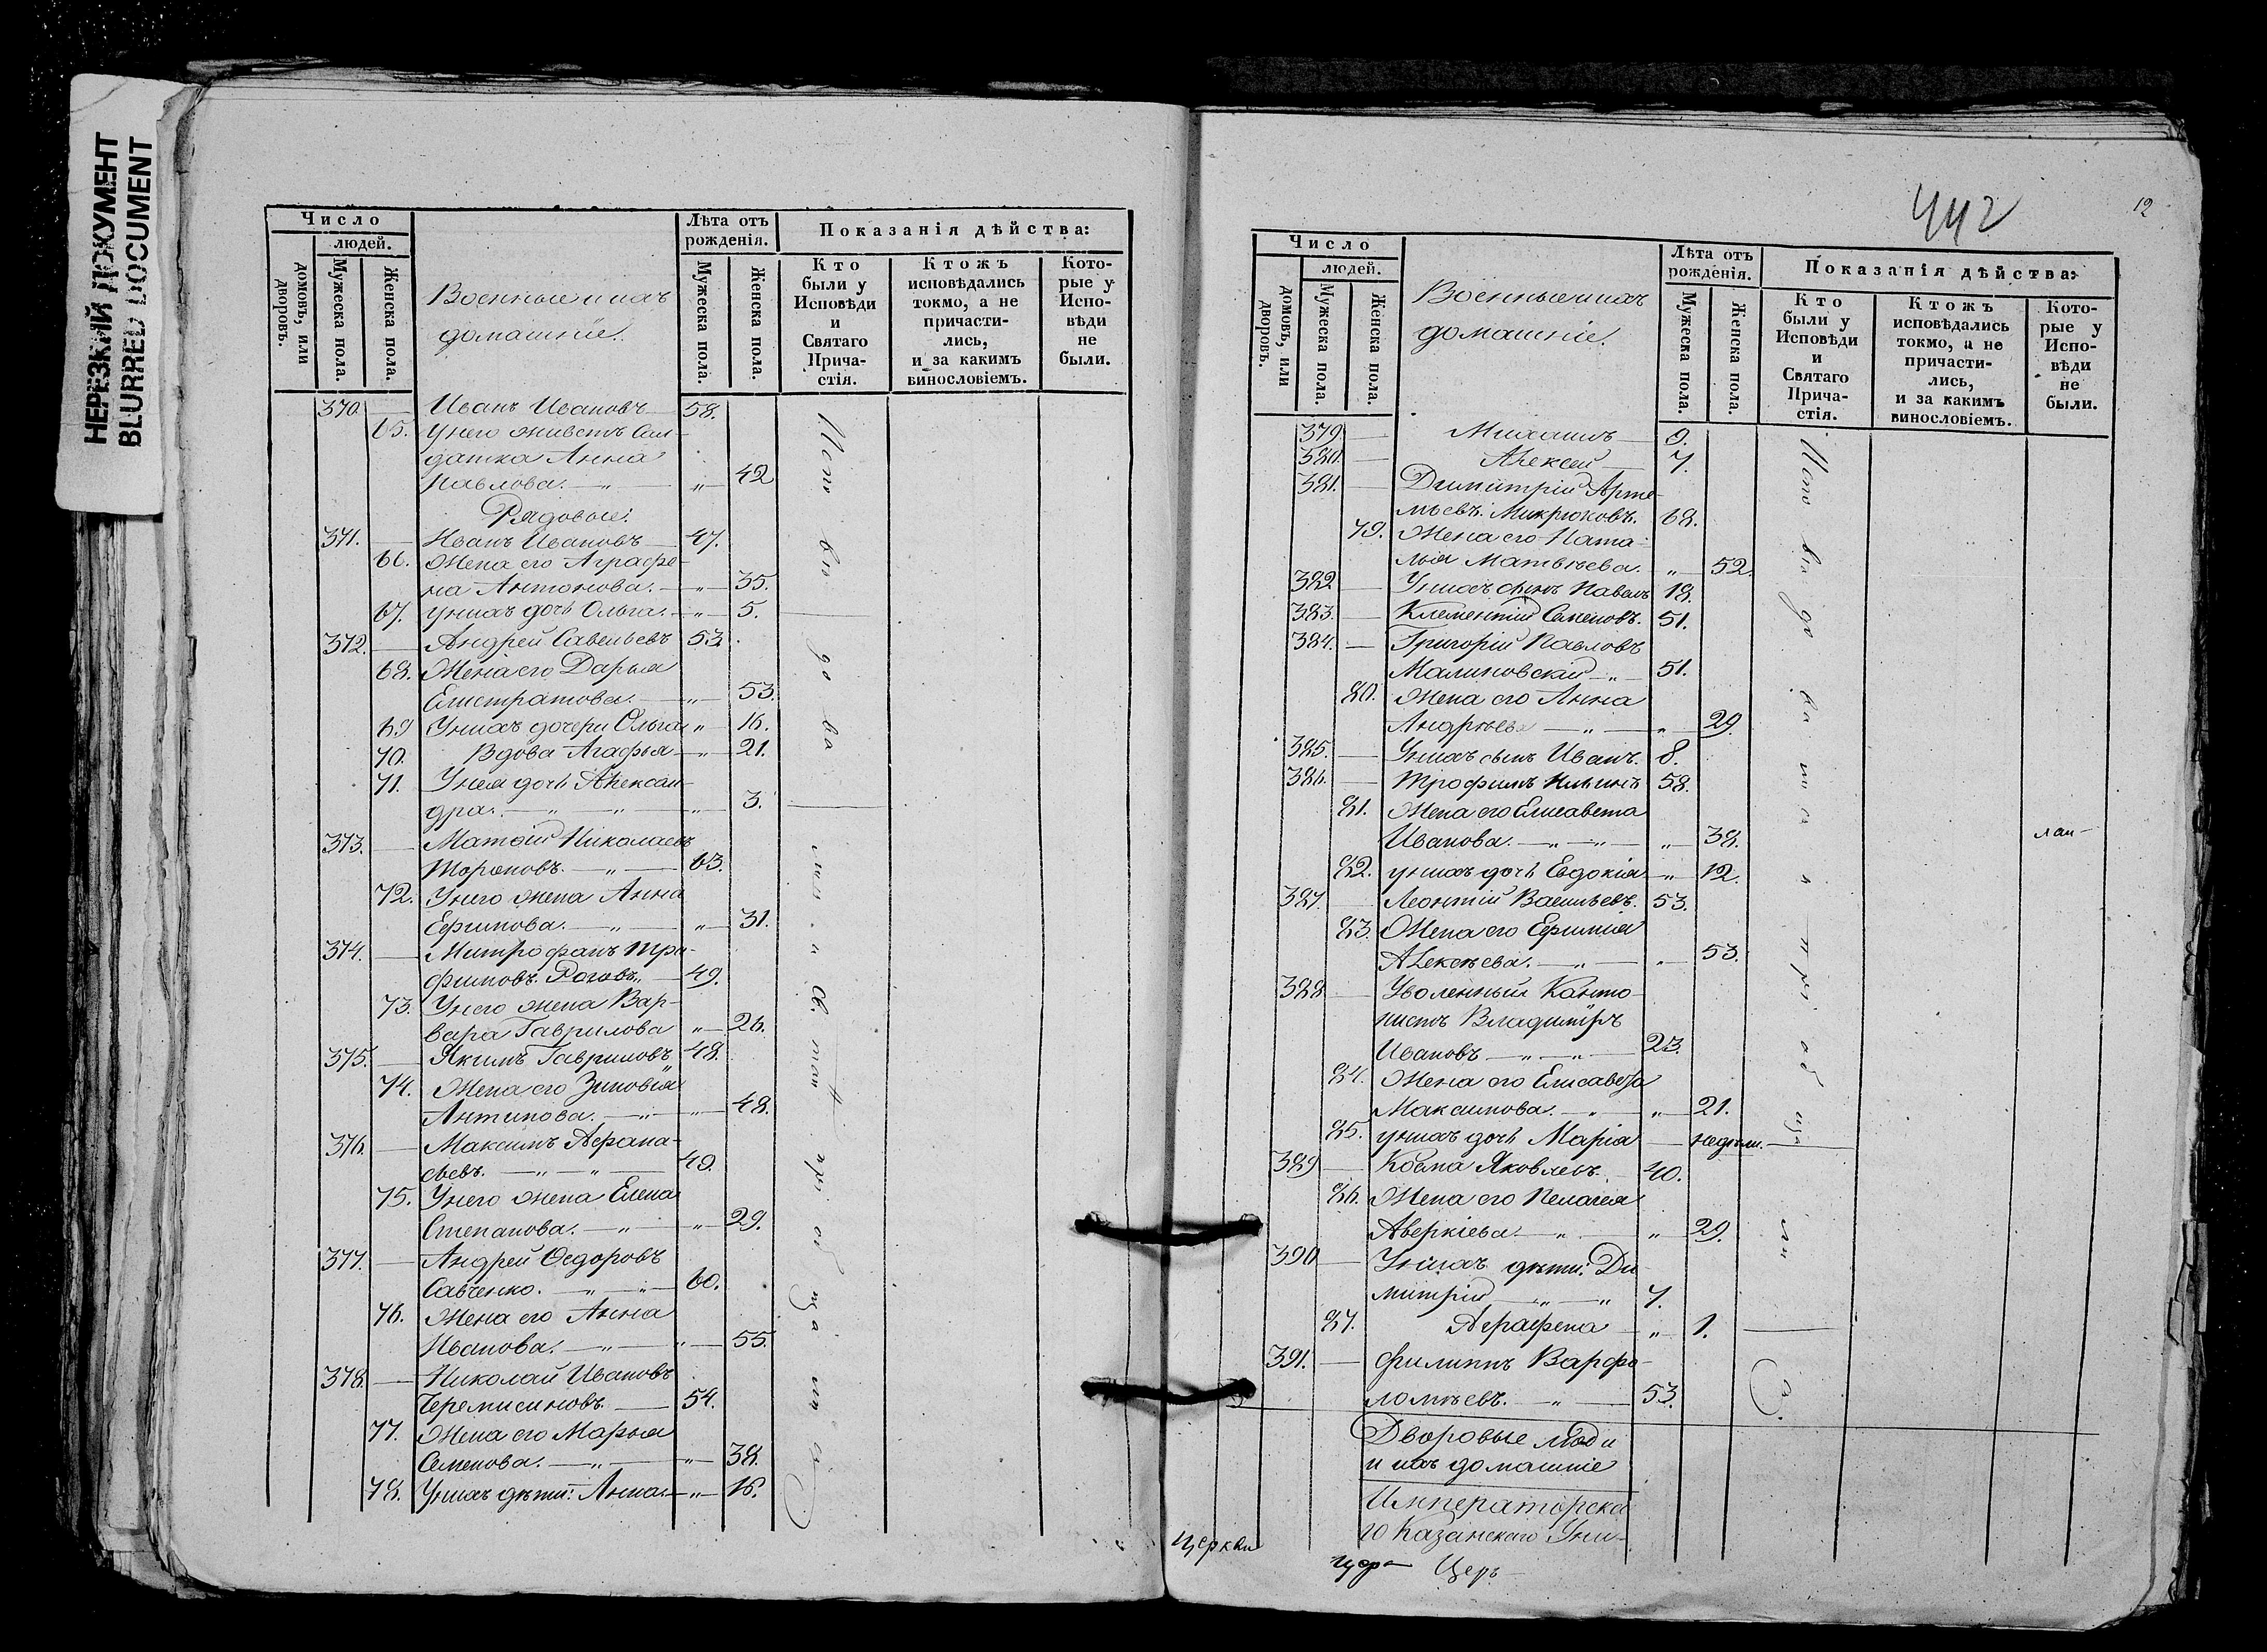 НЕРЕЗКИЙ ДОКУМЕНТ
BLURRED DOCUMENT
Число
людей.
домовъ, или дворовъ.
Мужеска пола.
Женска пола.
Военные и ихъ
домашніе.
Лѣта отъ рожденія.
Мужеска пола.
Женска пола.
Показанія дѣйства:
Кто были у Исповѣди и Святаго Прича-стія.
Ктожъ исповѣдались токмо, а не причасти-лись, и за какимъ винословіемъ.
Кото-рые у Испо-вѣди не были.
370. — Иванъ Ивановъ — 58.
65. У него живетъ Сол-
датка Анна
Павлова. — „ — „ — 42
Рядовые:
371. — Иванъ Ивановъ — 47.
66. Жена его Аграфе-
на Антонова. — „ — 35.
67. У нихъ дочь Ольга. — „ — 5.
372. — Андрей Савельевъ 53.
68. Жена его Дарья
Елистратова. — „ — 53.
69 У нихъ дочери Ольга „ — 16.
70. Вдова Агафья — „ — 21.
71. У нея дочь Алексан-
дра. — „ — „ — „ — 3.
373. — Матѳій Николаевъ
Тороповъ. — „ — 63.
72. У него жена Анна
Ефимова. — „ — „ — 31.
374. — Митрофанъ Тро-
фимовъ Роговъ „ — 49.
73. У него жена Вар-
вара Гаврилова „ — 26.
375. — Якимъ Гавриловъ 48.
74. Жена его Зиновія
Антипова. — „ — „ — 48.
376. — Максимъ Афана-
сьевъ. — „ — „ — 49.
75. У него жена Елена
Степанова. — „ — „ — 29.
377. — Андрей Ѳедоровъ
Савченко. — „ — „ — 60.
76. Жена его Анна
Иванова. — „ — „ — 55.
378. — Николай Ивановъ
Черемисиновъ — 54.
77. Жена его Марья
Семенова. — „ — „ — 38.
78. У нихъ дѣти: Анна — „ — 16.
Испо вѣ до ва лис и Св. таи пріобщаются
442
12
Число
людей.
домовъ, или дворовъ.
Мужеска пола.
Женска пола.
Военные и ихъ
домашніе.
Лѣта отъ рожденія.
Мужеска пола.
Женска пола.
Показанія дѣйства:
Кто были у Исповѣди и Святаго Прича-стія.
Ктожъ исповѣдались токмо, а не причасти-лись, и за какимъ винословіемъ.
Кото-рые у Испо-вѣди не были.
379. — Михаилъ — 9.
380. — Алексей — 7.
381. — Димитрій Арте-
мьевъ Микрюковъ. 68.
79. Жена его Ната-
лья Матвѣева. „ — 52.
382 — У нихъ сынъ Павелъ 18.
383. — Клементій Семеновъ. 51.
384. — Григорій Павловъ
Малиновскій — „ — 51.
80. Жена его Анна
Андрѣева — „ — „ — 29.
385. — У нихъ сынъ Иванъ. 8.
386. — Трофимъ Ильинъ 58.
81. Жена его Елисавета
Иванова. — „ — „ — „ — 38.
82. У нихъ дочь Евдокія „ — 12.
387. — Леонтій Васильевъ. 53.
83. Жена его Ефимія
Алексѣева. — „ — „ — 53.
388 — Уволенный Канто-
нистъ Владиміръ
Ивановъ — „ — „ — 23.
84. Жена его Елисавета
Максимова. — „ — „ — 21.
85. У нихъ дочь Марія — недѣли.
389 — Косма Яковлевъ. — 40.
86. Жена его Пелагея
Аверкіева. — „ — „ — 29.
390 — У нихъ дѣти: Ди-
митрій — „ — „ 7.
87. Аграфена — „ — 1.
391. — Филиппъ Варфо-
ломѣевъ. — „ — 53.
Дворовые люди
и ихъ домашніе
Императорска-
го Казанскаго Уни-
Испо вѣ до ва
лаи-
церкви
цер-
Церь-